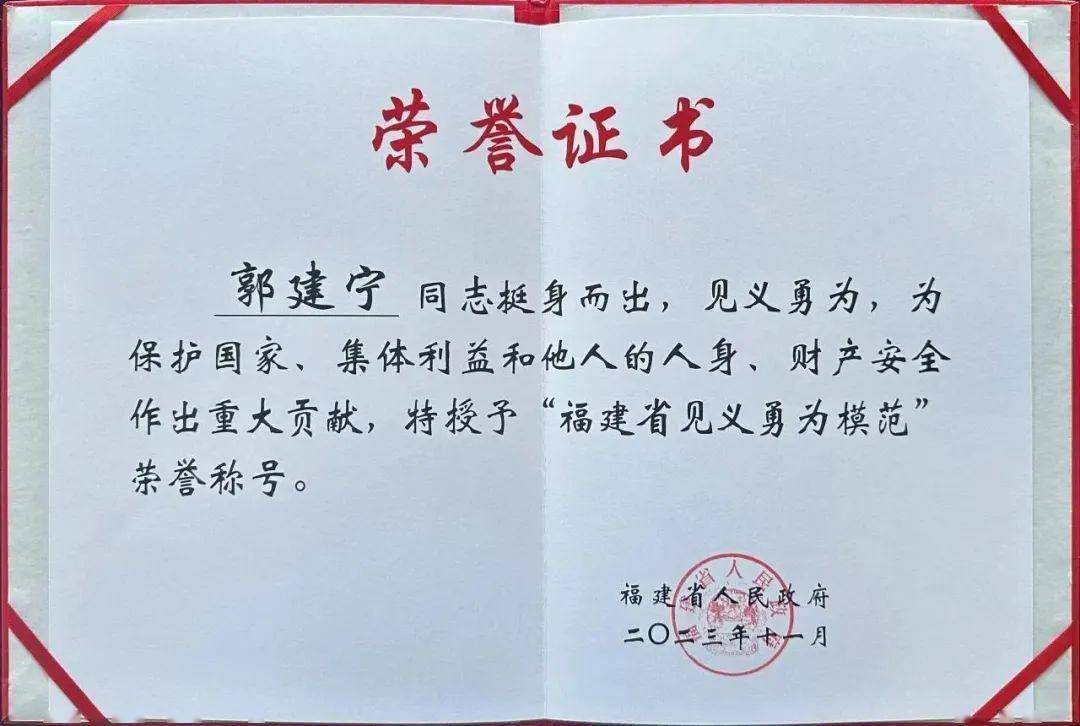 荣誉证书
郭建宁 同志挺身而出，见义勇为，为
保护国家、集体利益和他人的人身、财产安全
作出重大贡献，特授予“福建省见义勇为模范”
荣誉称号。
福建省人民政府
二〇二三年十一月
福建省人民政府